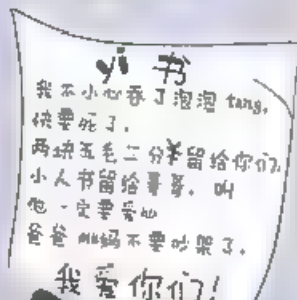 yi 书
我不小心吞了泡泡 tang,
快要死了.
两块五毛二分￥留给你们,
小人书留给哥哥. 叫
他一定要爱
爸爸 妈妈不要吵架了.
我爱你们!